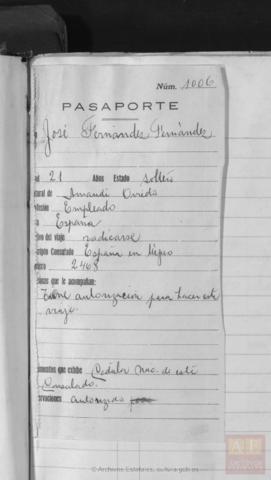 Núm. 1006
PASAPORTE
José Fernández Fernández
ad 21 Años Estado soltero
tural de Amandi Oviedo
fesión Empleado
España
ivo del viaje radicarse
Consulado España en Méjico
úmero 2468
onas que le acompañan:
Tiene autorización para hacer este
viaje.
umentos que exhibe Cedula Nac. de este
Consulado.
ervaciones autorizado
© Archivos Estatales, cultura.gob.es